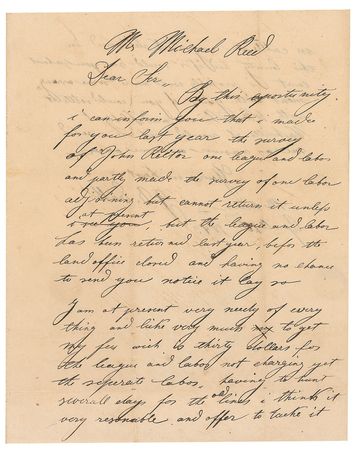 Mr Michael Reed
Dear Ser,,
By this oportunity
i can inform you that i made
for you last year the survey
of John Rector one league and labor
and partly made the survey of one labor
adjoining but cannot return it unless
at present
i see you, but the league and labor
has bun returned last year, befor the
land office closed and having no chance
to send you notice it lay so
I am at present very needy of every
thing and like very much my to get
my fee wich is thirty dollars for
the league and labor not charging yet
the seperate labor, having to hunt
severall days for the old lines i think it
very resonable and offer to take it